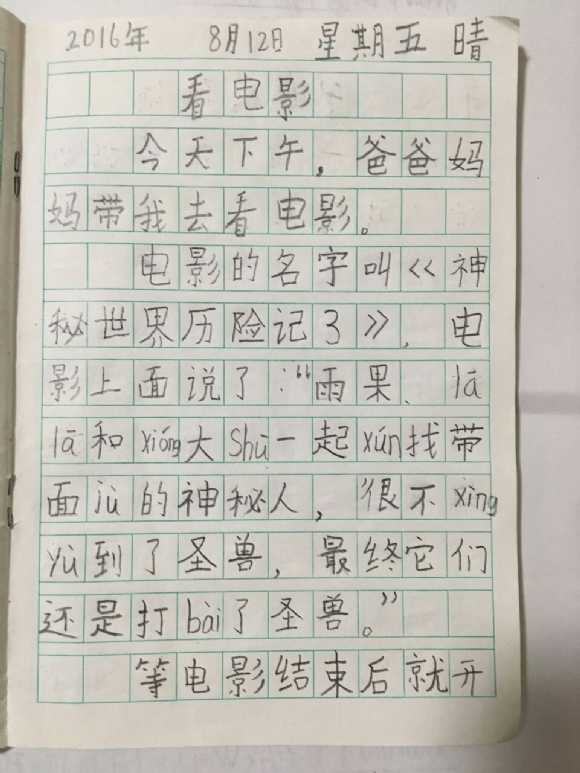 2016年 8月12日 星期五 晴
看电影
今天下午，爸爸妈
妈带我去看电影。
电影的名字叫《神
秘世界历险记3》，电
影上面说了：“雨果、lā
lā和xióng大Shū一起xún找带
面jù的神秘人，很不xìng
yù到了圣兽，最终它们
还是打bài了圣兽。”
等电影结束后就开